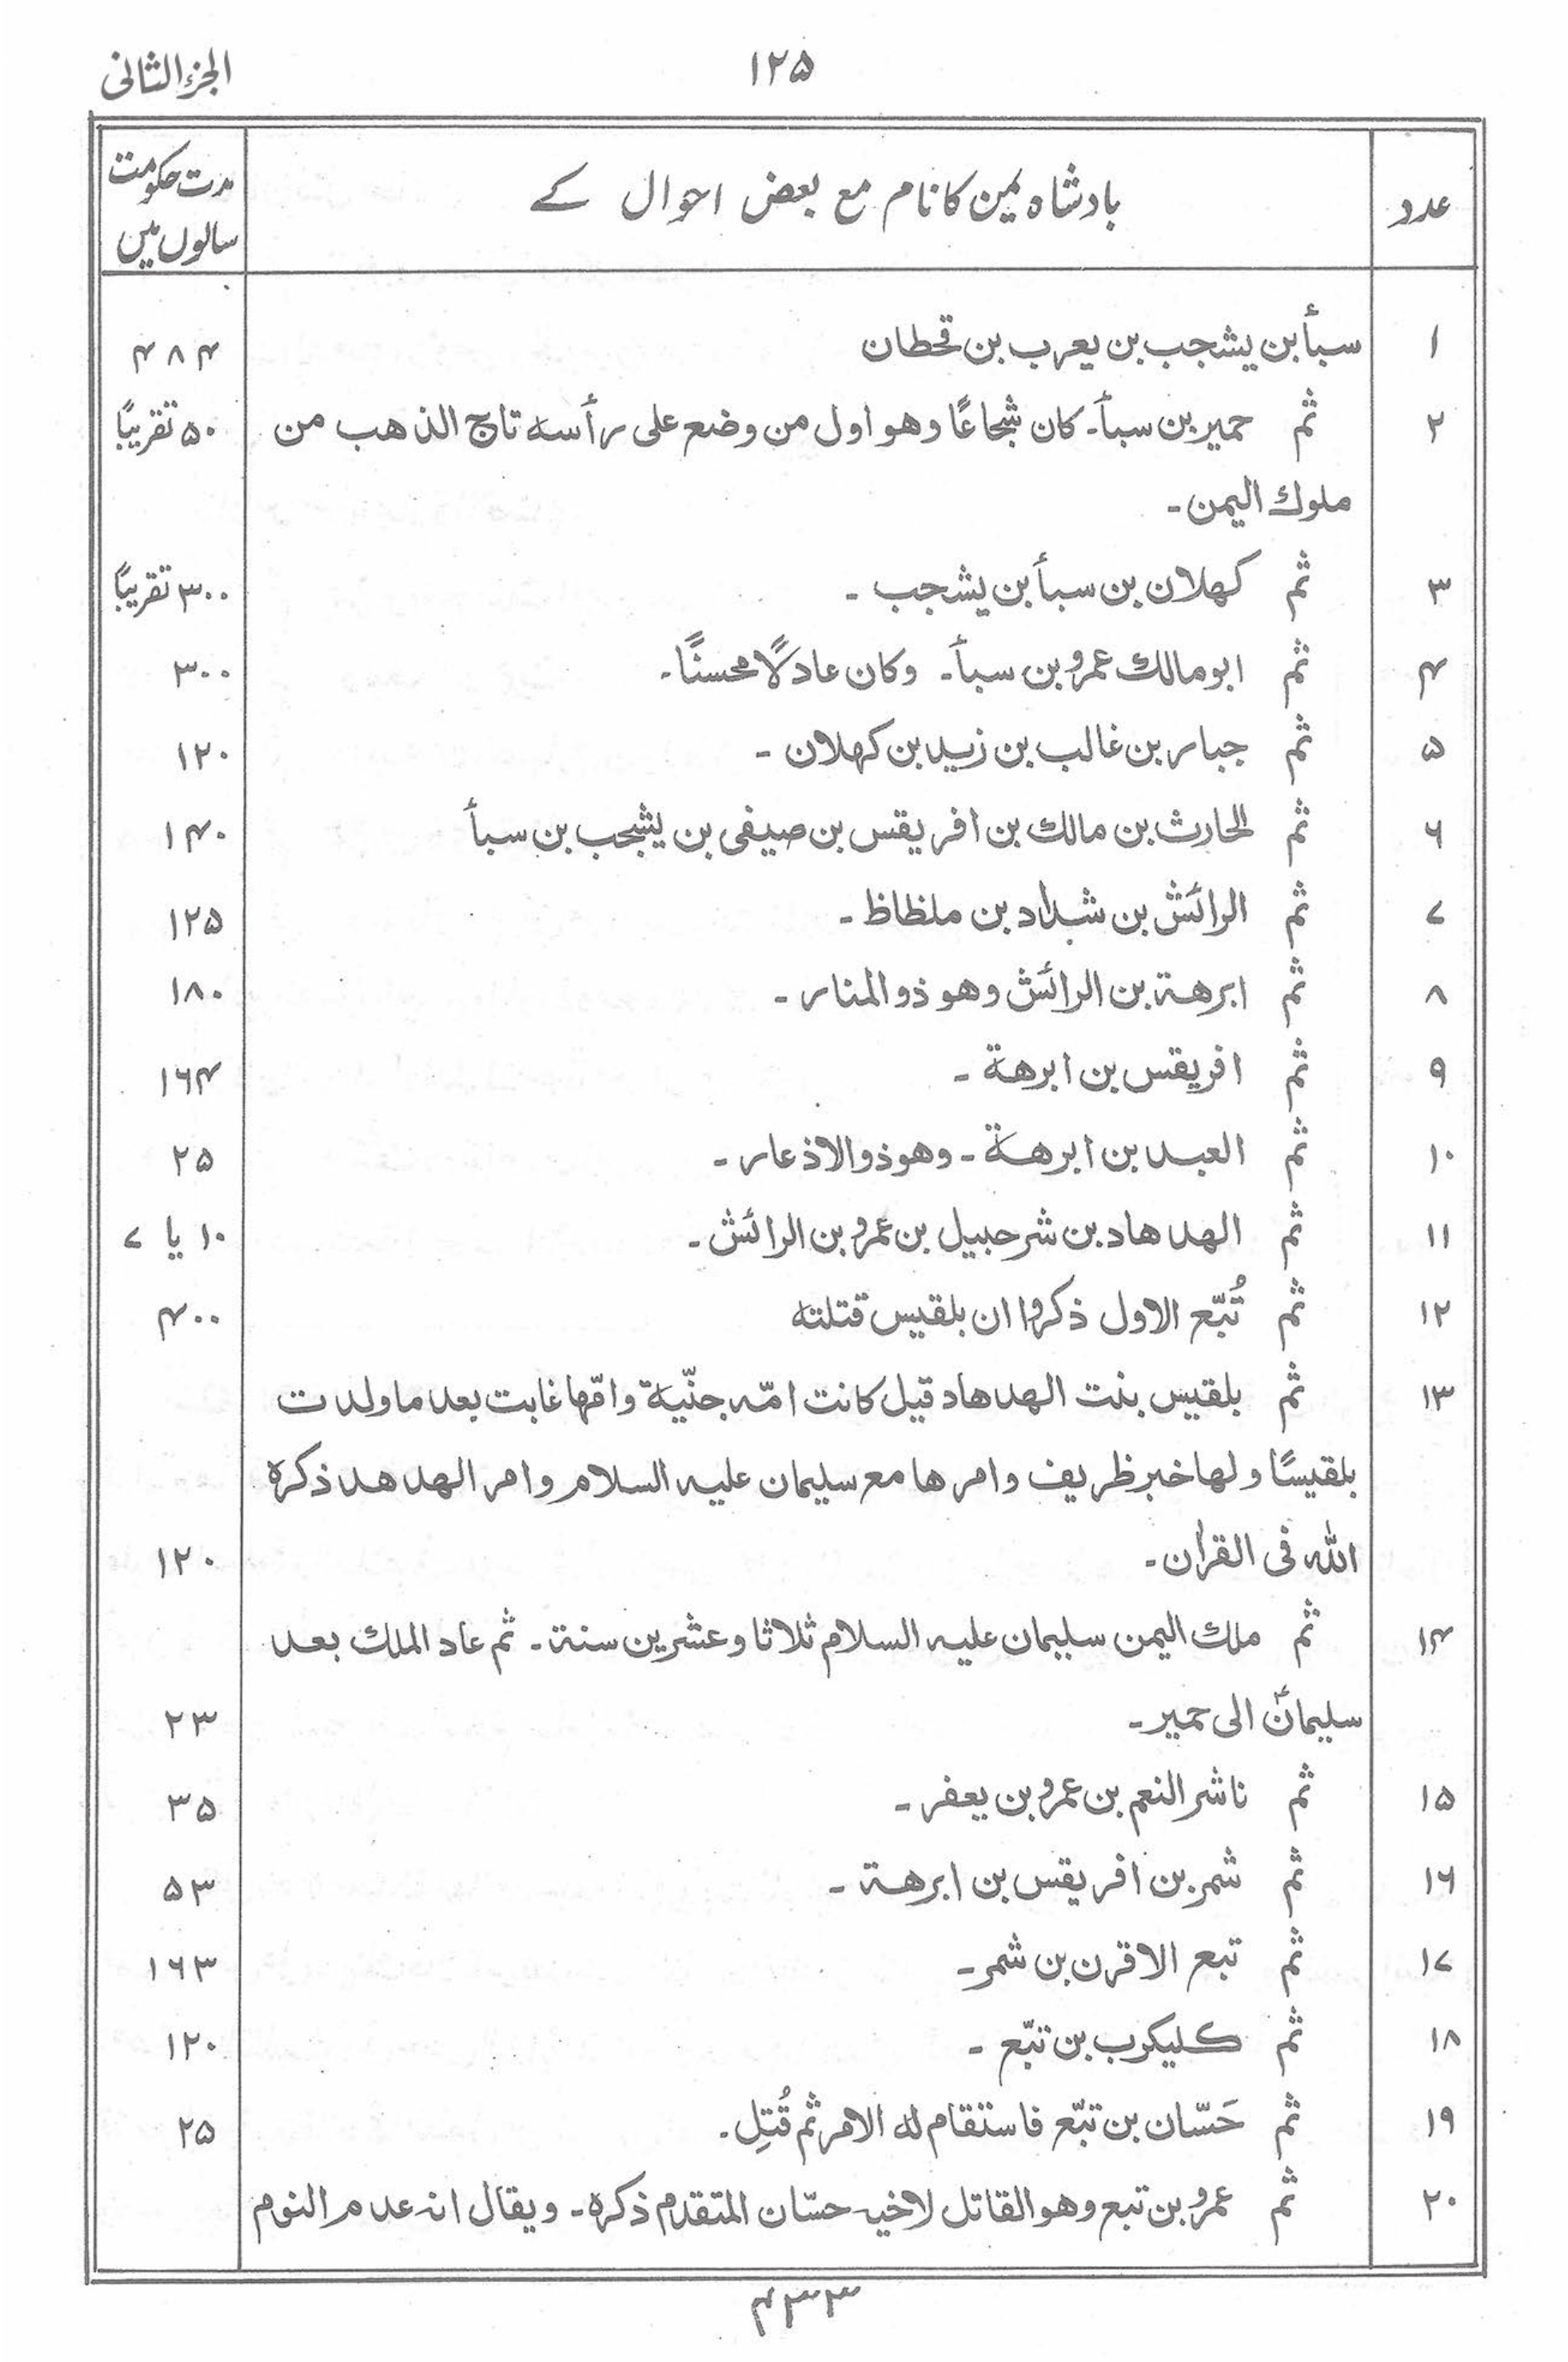 ۱۲۵
الجزء الثانی
عدد بادشاہ یمن کا نام مع بعض احوال کے مدت حکومت
سالوں میں
۱ سبأ بن یشجب بن یعرب بن قحطان ۴۸۴
۲ ثم حمیر بن سبأ۔ کان شجاعًا وهو اول من وضع علی رأسه تاج الذهب من ۵۰ تقریبًا
ملوك الیمن۔
۳ ثم کهلان بن سبأ بن یشجب۔ ۳۰۰ تقریبًا
۴ ثم ابو مالك عمرو بن سبأ۔ وکان عادلًا محسنًا۔ ۳۰۰
۵ ثم جبار بن غالب بن زید بن کهلان۔ ۱۲۰
۶ ثم الحارث بن مالك بن افریقس بن صیفی بن یشجب بن سبأ ۱۴۰
۷ ثم الرائش بن شداد بن ملظاظ۔ ۱۲۵
۸ ثم ابرهة بن الرائش وهو ذو المنار۔ ۱۸۰
۹ ثم افریقس بن ابرهة۔ ۱۶۴
۱۰ ثم العبد بن ابرهة۔ وهو ذو الاذعار۔ ۲۵
۱۱ ثم الهدهاد بن شرحبیل بن عمرو بن الرائش۔ ۱۰ یا ۷
۱۲ ثم تُبّع الاول ذکروا ان بلقیس قتلته ۴۰۰
۱۳ ثم بلقیس بنت الهدهاد قیل کانت امّه جنّیة وامّها غابت بعد ما ولدت
بلقیسًا ولها خبر ظریف وامرها مع سلیمان علیه السلام وامر الهدهد ذکره
الله فی القرآن۔ ۱۲۰
۱۴ ثم ملك الیمن سلیمان علیه السلام ثلاثا وعشرین سنة۔ ثم عاد الملك بعد
سلیمانؑ الی حمیر۔ ۲۳
۱۵ ثم ناشر النعم بن عمرو بن یعفر۔ ۳۵
۱۶ ثم شمر بن افریقس بن ابرهة۔ ۵۳
۱۷ ثم تبع الاقرن بن شمر۔ ۱۶۳
۱۸ ثم کلیکرب بن تبّع۔ ۱۲۰
۱۹ ثم حَسّان بن تبّع فاستقام له الامر ثم قُتِل۔ ۲۵
۲۰ ثم عمرو بن تبع وهو القاتل لاخیه حسّان المتقدم ذکره۔ ویقال انه عدم النوم
۴۳۳